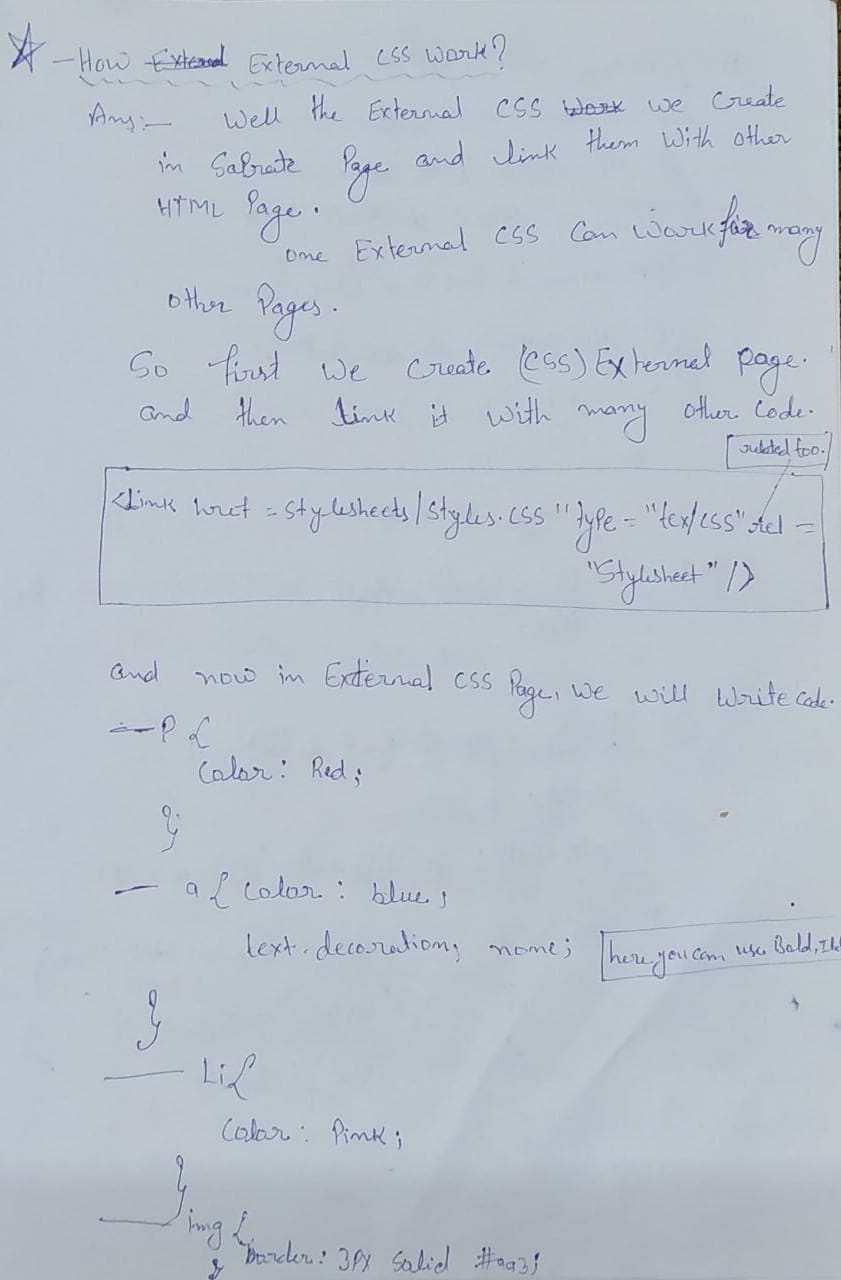 - How External CSS Work?
Ans:- Well the External CSS Work we Create
in Sabrate Page and link them With other
HTML Page.
one External CSS Can Wourk for many
other Pages.
So first we Create (CSS) External page.
and then link it with many other Code.
related too.
<Link href = Stylesheets/Styles.css " type = "tex/css" rel =
"Stylesheet" />
and now in External CSS Page, we will Write Code.
- P {
Color: Red;
}
- a { Color: blue;
text.decoration; none; here you can use Bold,
}
- Li {
Color: Pink;
}
img {
border: 3PX Solid #aa3;